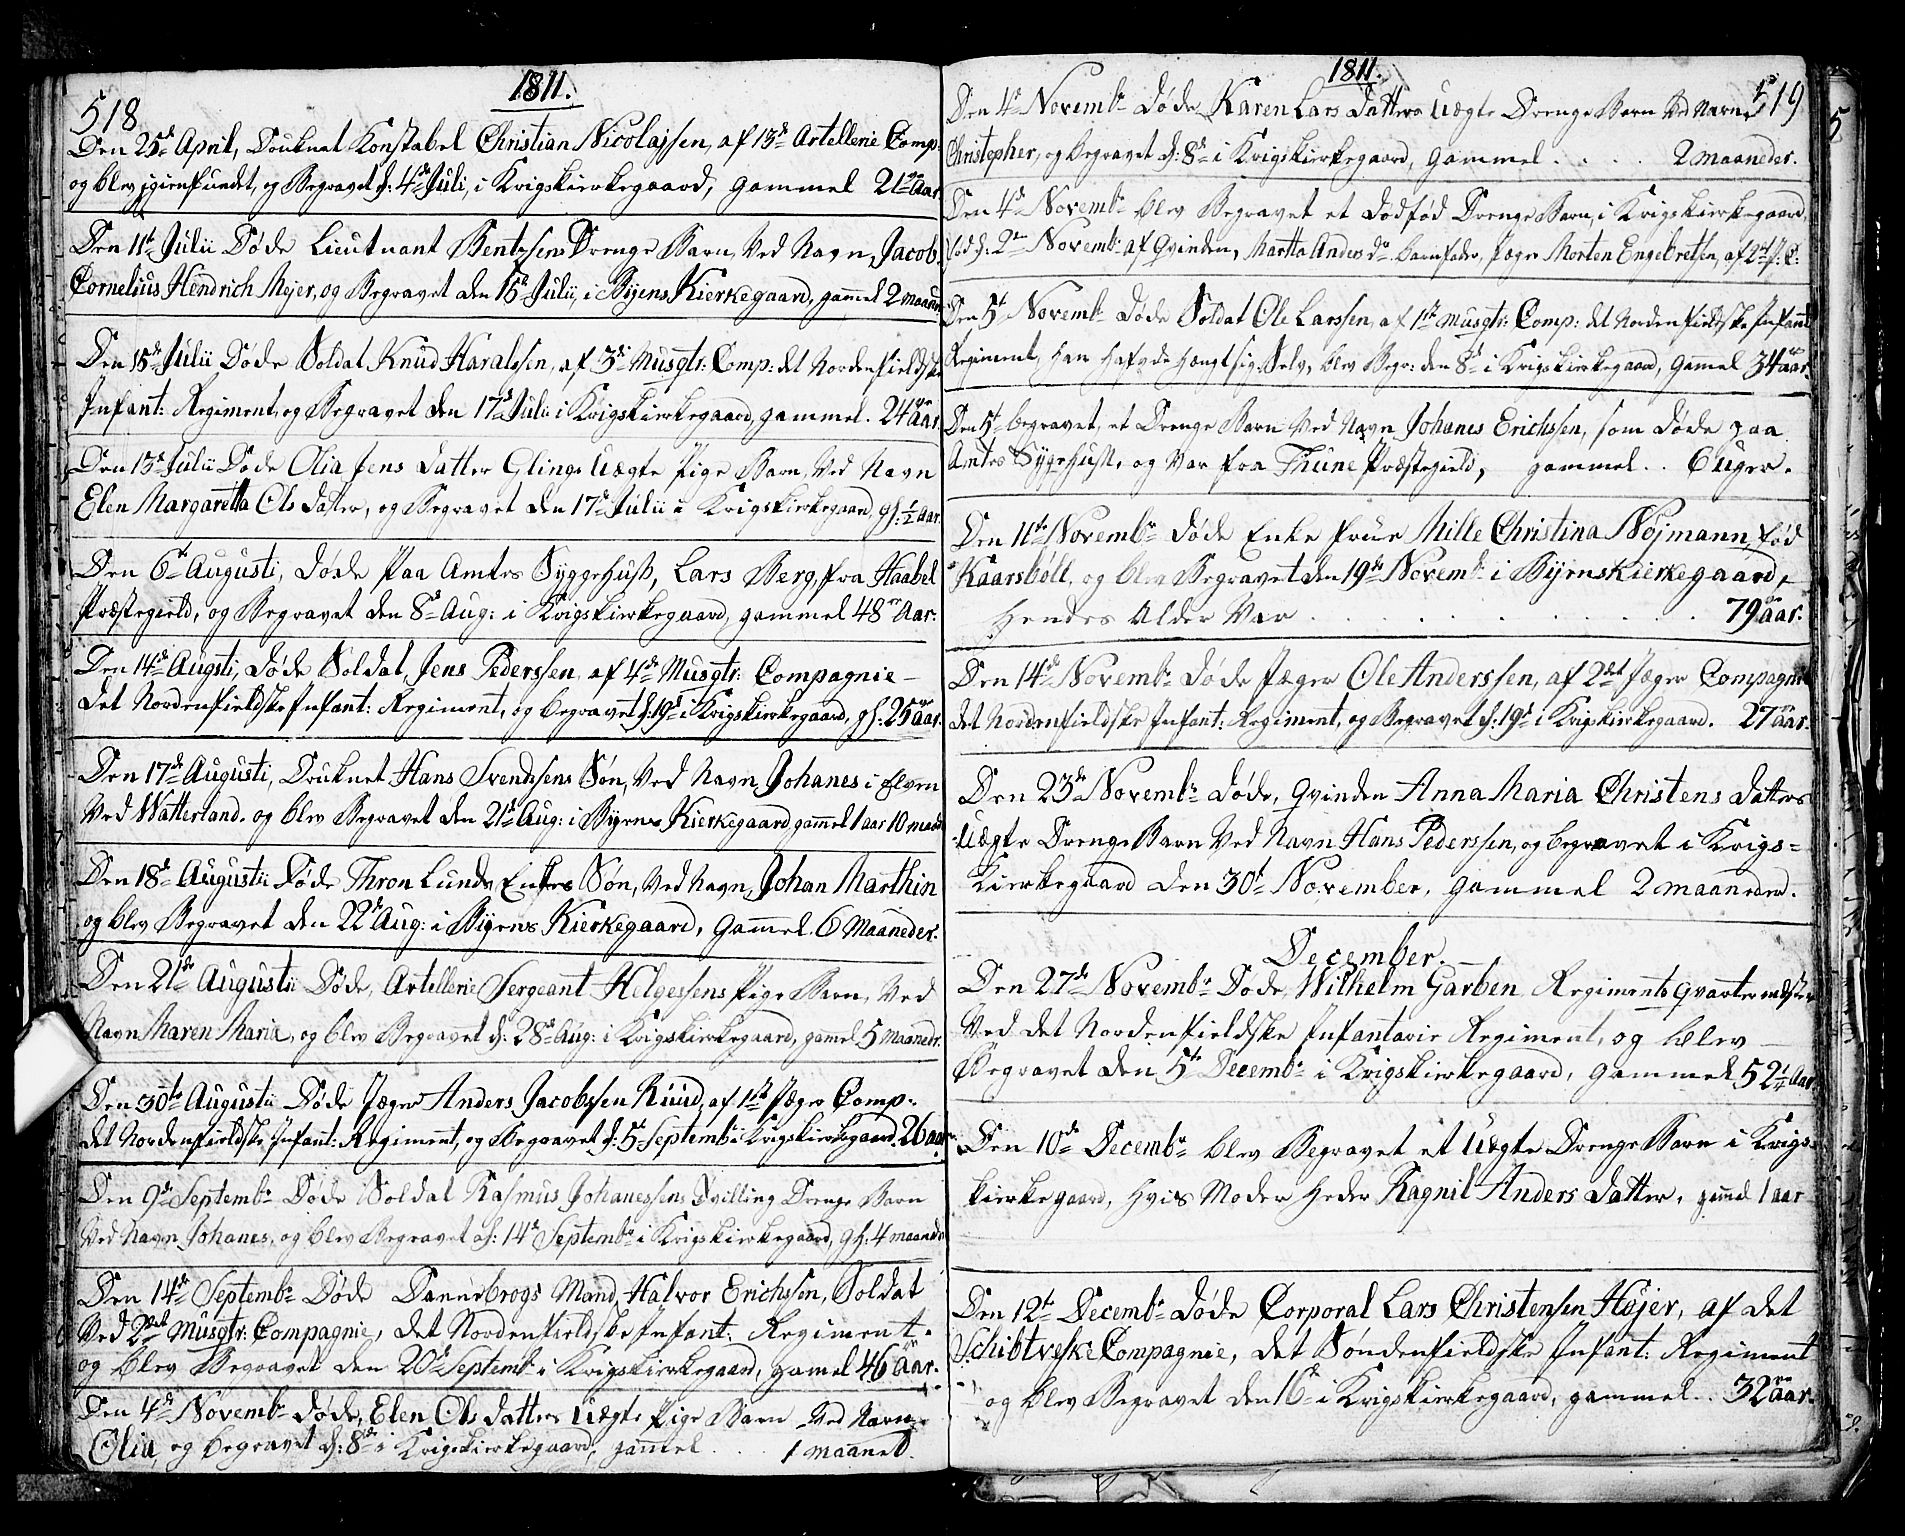 1811.
518
Den 25de April, Druknet Konstabel Christian Nicolajsen, af 13de Artellerie Comp:
og blev igienfundet, og Begravet d: 4de Juli, i Krigskierkegaard, gammel 21 aar
Den 11te Julii Døde Lieutnant Bentzens Drenge Barn, Ved Navn, Jacob
Cornelius Hendrich Mejer, og Begravet den 15de Julii, i Byens Kierkegaard, gamel 2 maaner
Den 15de Julii Døde Soldat Knud Haralssen, af 3de Musqtr: Comp: det Nordenfieldske
Infant: Regiment, og Begravet den 17de Julii i Krigskierkegaard, gammel. 24 aar.
Den 13de Julii Døde Olia Jens Datter Glings Uægte Pige Barn, Ved Navn
Elen Margaretta Ols Datter, og Begravet den 17de Julii i Krigskierkegaard, gl: ½ aar.
Den 6te Augusti, Døde Paa Amtes Syggehuss, Lars Berg, fra Haabel
Præstegield, og Begravet den 8de Aug: i Krigskierkegaard, gammel 48 Aar.
Den 14de Augsti, Døde Soldat, Jens Pederssen, af 4de Musqtr: Compagnie
det Nordenfieldske Infant: Regiment, og begravet d: 19de i Krigskierkegaard, gl: 25 aar.
Den 17de Augusti, Druknet Hans Svendsens Søn, Ved Navn, Johanes i Elven
Ved Watterland. og blev Begravet den 21de Aug: i Byens Kierkegaard gamel 1 aar 10 maaned
Den 18de Augustii Døde Thron Lunds Enkes Søn, Ved Navn, Johan Marthin
og blev Begravet den 22de Aug: i Byens Kierkegaard, gamel. 6 Maaneder.
Den 21de Augustii Døde, Artellerie Sergeant Helgessens Pige Barn, Ved
Navn Maren Maria, og blev Begravet d: 28de Aug: i Krigskierkegaard, gamel 5 Maanedr.
Den 30te Augustii Døde Jæger Anders Jacobssen Ruud, af 1ste Jæger Comp:
det Nordenfieldske Infant: Regiment, og Begravet d: 5te Septemb: i Krigskierkegaard, 26 aar
Den 9de Septembr Døde Soldat Rasmus Johanessens Tvilling Drenge Barn
Ved Navn Johanes, og blev Begravet d: 14de Septembr i Krigskierkegaard, gl: 4 maaneder
Den 14de Septembr Døde Dannebrogs Mand, Halvor Erichssen, Soldat
Ved 2det Musqtr: Compagnie, det Nordenfieldske Infant: Regiment.
og blev Begravet den 20de Septemb: i Krigskierkegaard, gamel 46 aar.
Den 4de Novembr døde, Elen Ols datters uægte Pige Barn Ved Navn
Olia, og begravet d: 8de i Krigskierkegaard, gamel . . . 1 maaned.
1811.
519
Den 4de Novembr Døde Karen Lars Datters Uægte Drenge Barn Ved Navn
Christepher, og begravet d: 8de i Krigskierkegaard, gammel . . . . 2 maaneder.
Den 4de Novembr blev Begravet et Dødfød Drenge Barn, i Krigskierkegaard,
fød d: 2de Novembr af Qvinden, Martta Anders dr barnfader, Jæger Morten Engebretsen, af 2det J: C:
Den 5te Novembr Døde Soldat Ole Larssen, af 1ste Musqtr: Comp: det Nordenfieldske Infant
Regiment, han hafvde hengt sig Selv, blev Begr: den 8de i Krigskierkegaard, gamel 34 aar.
Den 5te begravet, et Drenge Barn Ved Navn Johanes Erichssen, som døde paa
Amtes Sygehuss, og Var fra Thune Præstegield, gammel . . 6 uger.
Den 11te Novembr døde Enke Frue Mille Christina Nøjmann, fød
Kaarsbøll, og blev Begravet den 19de Novemb: i Byens kierkegaard,
hendes Alder Var . . . . . . . 79 aar.
Den 14de Novembr Døde Jæger Ole Anderssen, af 2det Jæger Compagnie
det Nordenfieldske Infant: Regiment, og Begravet d: 19de i Krigskierkegaard. 27 aar.
Den 23de Novembr Døde, Qvinden Anna Maria Christens Datters
uægte Drenge Barn Ved Navn Hans Pederssen, og begravet i Krigs=
Kierkegaard den 30te November, gammel 2 maaneder.
December.
Den 27de Novembr Døde Wilhelm Garben Regiments Qvarteermester
Ved det Nordenfieldske Infantarie Regiment, og blev
Begravet den 5te Decembr i Krigskierkegaard, gammel 52 Aar
Den 10de Decembr blev Begravet et Uægte Drenge Barn i Krigs=
kierkegaard, hvis Moder heder Ragnil Anders Datter, gamel 1 aar
Den 12te Decembr Døde Corporal Lars Christensen Højer, af det
Schibtveske Compagnie, det Søndenfieldske Infant: Regiment
og blev Begravet den 16de i Krigskierkegaard, gammel . . 32 aar.